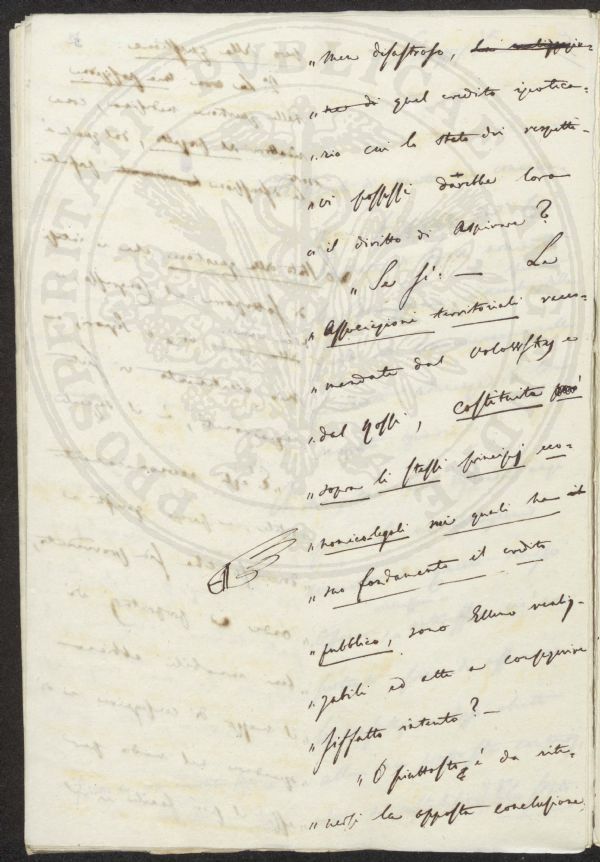 "men disastroso,
" di quel credito ipoteca-
"rio cui lo stato dei rispetti-
"vi possessi darebbe loro
"il diritto di aspirare?
"Se sì: — Le
"Associazioni territoriali racco-
"mandate dal Wolowski e
"dal Rossi, costituite
"sopra li stessi principj eco-
"nomico-legali nei quali ha il
"suo fondamento il credito
"pubblico, sono Elleno realiz-
"zabili ed atte a conseguire
"siffatto intento? —
"O piuttosto è da rite-
"nersi la opposta conclusione
PROSPERITATI PUBLICAE